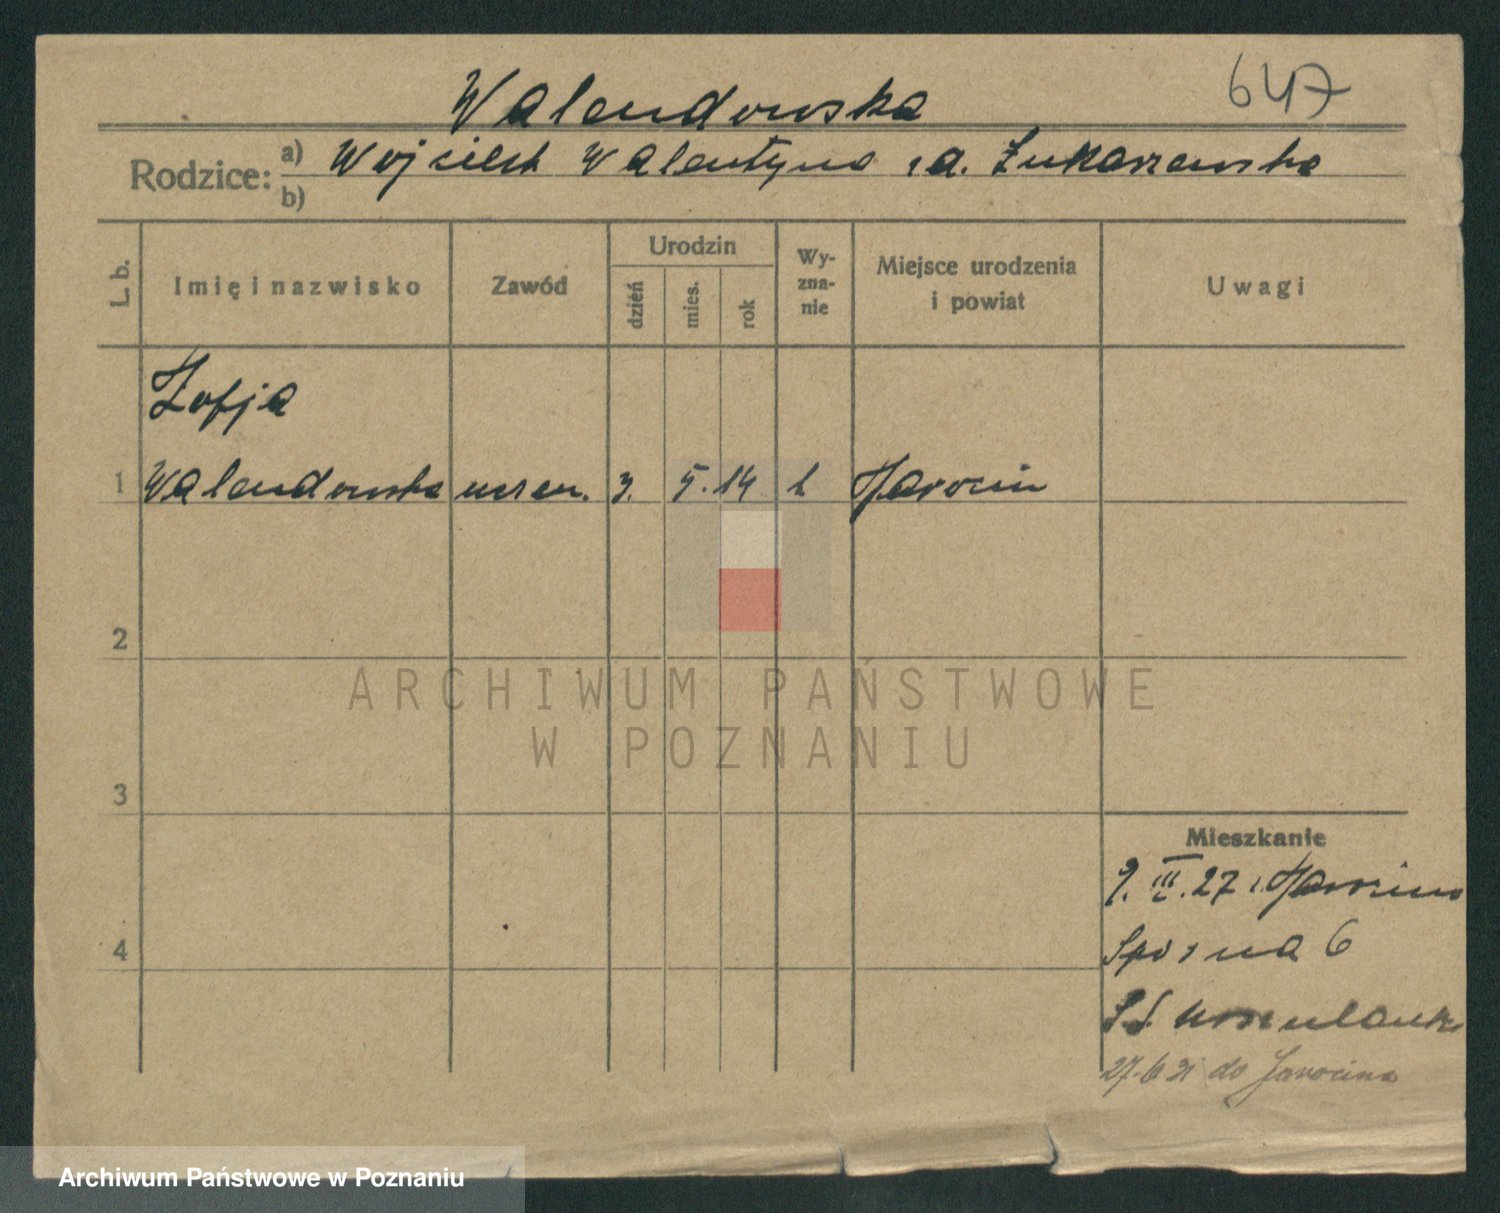 Walendowska
647
Rodzice:
a) Wojciech Walentyna z d. Łukaszewska
b)
L. b.
Imię i nazwisko
Zawód
Urodzin
dzień
mies.
rok
Wy-
zna-
nie
Miejsce urodzenia
i powiat
Uwagi
Zofja
1 Walendowska uczen. 3. 5. 14 k Jarocin
2
ARCHIWUM PAŃSTWOWE
W POZNANIU
3
Mieszkanie
9. III. 27 z Jarocina
4
Sporna 6
S.S. Urszulank
27.6 31 do Jarocina
Archiwum Państwowe w Poznaniu